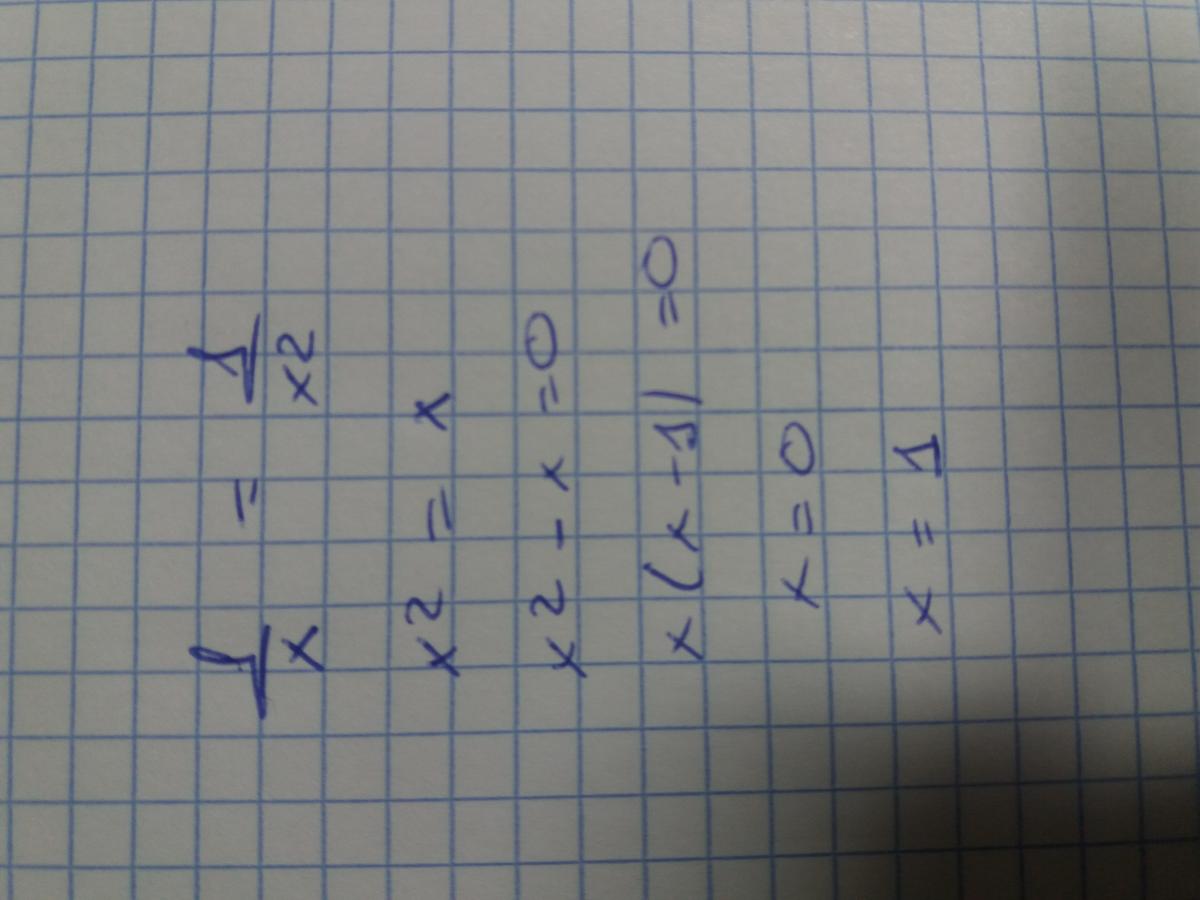 1/x = 1/x2
x2 = x
x2 - x = 0
x(x-1) = 0
x = 0
x = 1